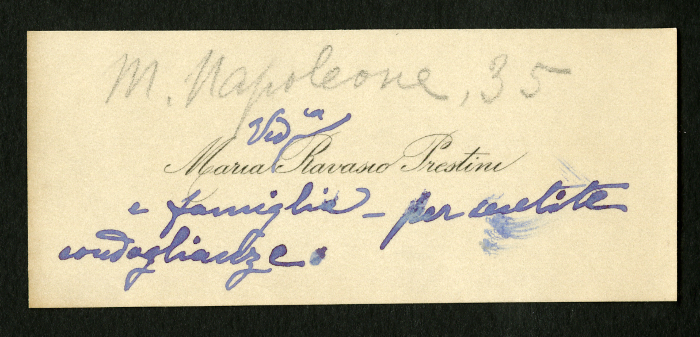 M. Napoleone, 35
Ved.a
Maria Ravasio Prestini
e famiglia - per sentite
condoglianze.